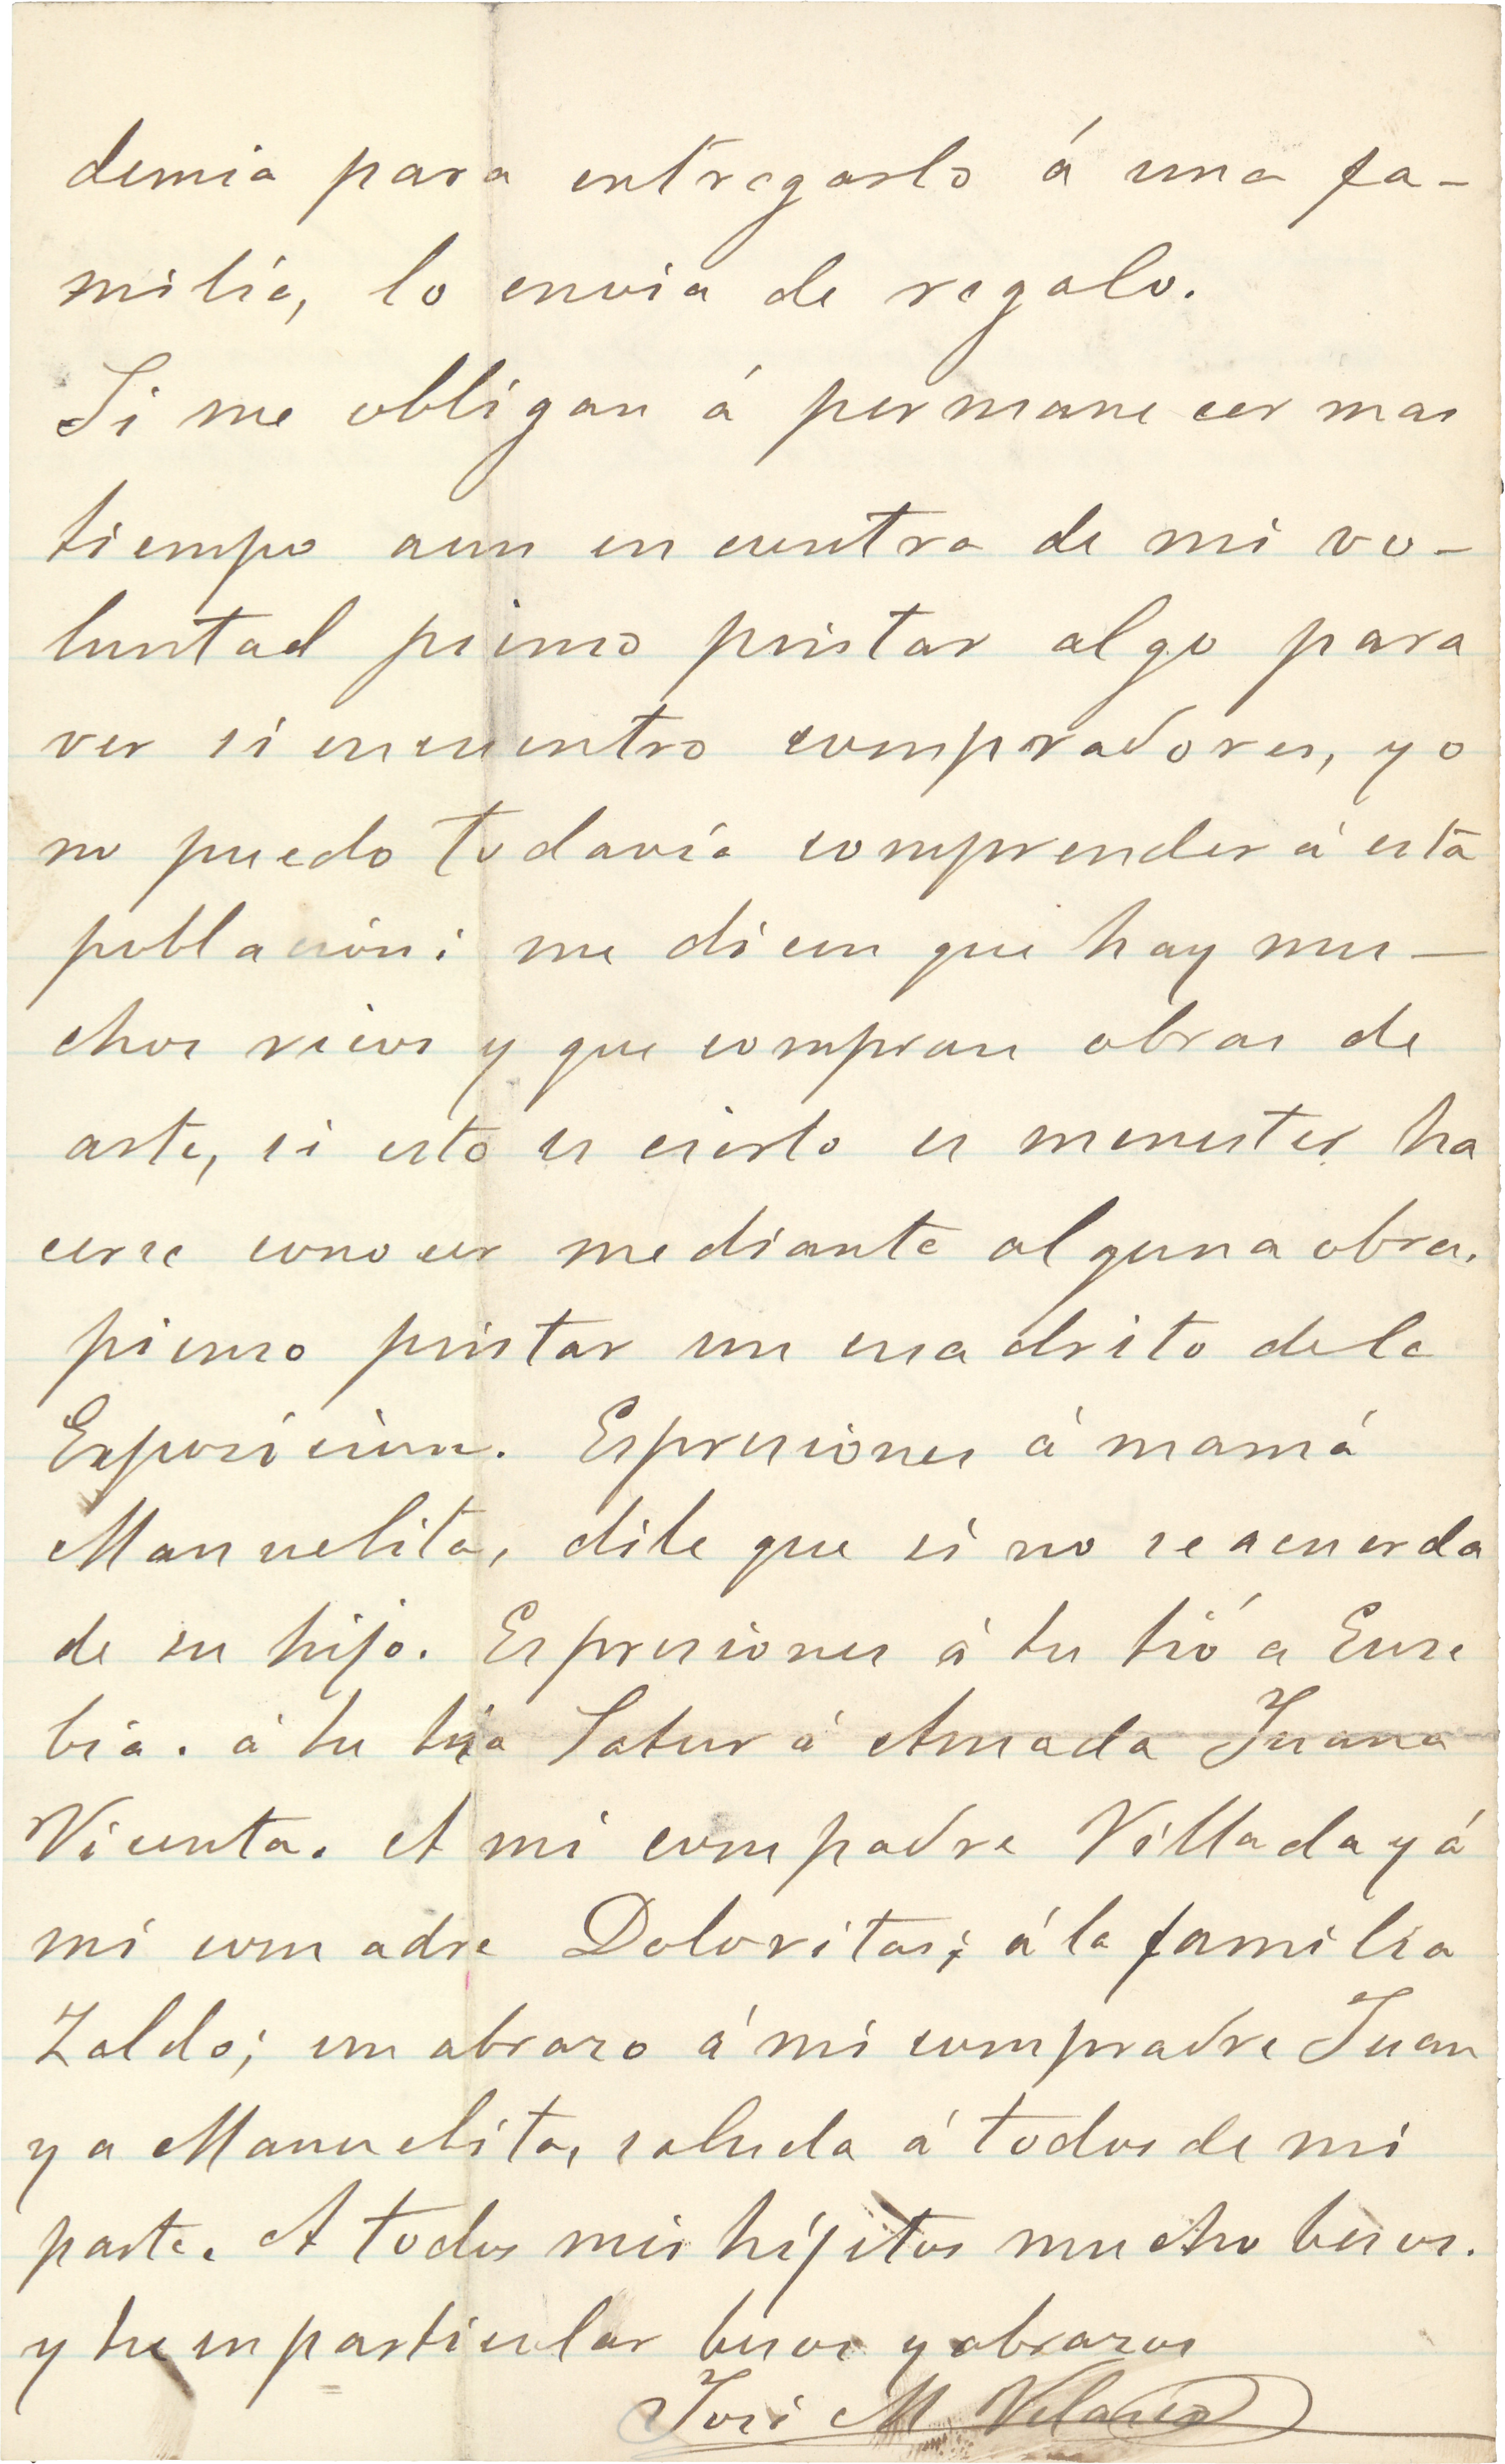 demia para entregarlo á una fa-
milia, lo envia de regalo.
Si me obligan á permanecer mas
tiempo aun en contra de mi vo-
luntad pienso pintar algo para
ver si encuentro compradores, yo
no puedo todavía comprender á esta
poblacion; me dicen que hay mu-
chos ricos y que compran obras de
arte, si esto es cierto es menester ha
cerse conocer mediante alguna obra.
pienso pintar un cuadrito de la
Exposicion. Espresiones á mamá
Manuelita, dile que si no se acuerda
de su hijo. Espresiones á tu tió a Euse
bia. á tu tia Satur á Amada Juana
Vicenta. A mi compadre Villada y á
mi comadre Doloritas; á la familia
Zaldo; un abrazo á mi compradre Juan
y a Manuelita, saluda á todos de mi
parte. A todos mis hijitos mucho besos.
y tu en particular besos y abrazos
José M Velasco